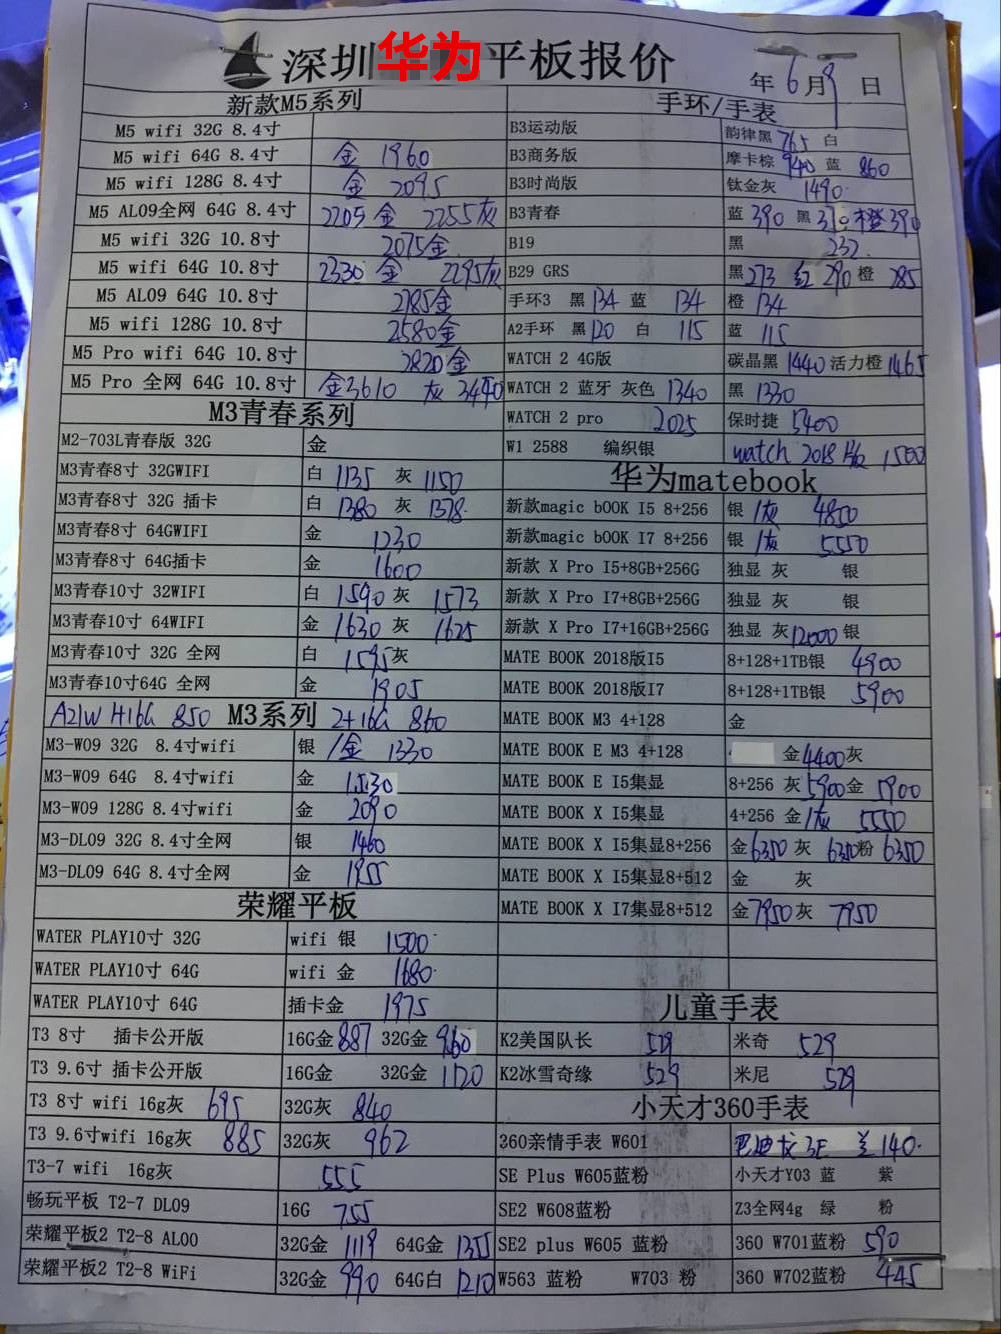 深圳华为平板报价
年6月9日
新款M5系列
M5 wifi 32G 8.4寸
M5 wifi 64G 8.4寸 金 1960
M5 wifi 128G 8.4寸 金 2095
M5 AL09全网 64G 8.4寸 2205金 2255灰
M5 wifi 32G 10.8寸 2075金
M5 wifi 64G 10.8寸 2330金 2295灰
M5 AL09 64G 10.8寸 2785金
M5 wifi 128G 10.8寸 2580金
M5 Pro wifi 64G 10.8寸 2820金
M5 Pro 全网 64G 10.8寸 金3610 灰3490
M3青春系列
M2-703L青春版 32G 金
M3青春8寸 32GWIFI 白 1135 灰 1150
M3青春8寸 32G 插卡 白 1380 灰 1378
M3青春8寸 64GWIFI 金 1230
M3青春8寸 64G插卡 金 1600
M3青春10寸 32WIFI 白 1590 灰 1573
M3青春10寸 64WIFI 金 1630 灰 1625
M3青春10寸 32G 全网 白 1595灰
M3青春10寸64G 全网 金 1905
A21W H16G 850 M3系列 2+16G 860
M3-W09 32G 8.4寸wifi 银 /金 1330
M3-W09 64G 8.4寸wifi 金 1530
M3-W09 128G 8.4寸wifi 金 2090
M3-DL09 32G 8.4寸全网 银 1460
M3-DL09 64G 8.4寸全网 金 1955
荣耀平板
WATER PLAY10寸 32G wifi 银 1500
WATER PLAY10寸 64G wifi 金 1680
WATER PLAY10寸 64G 插卡金 1975
T3 8寸 插卡公开版 16G金 887 32G金 960
T3 9.6寸 插卡公开版 16G金 32G金 1120
T3 8寸 wifi 16g灰 695 32G灰 840
T3 9.6寸wifi 16g灰 885 32G灰 962
T3-7 wifi 16g灰 555
畅玩平板 T2-7 DL09 16G 755
荣耀平板2 T2-8 AL00 32G金 1119 64G金 1355
荣耀平板2 T2-8 WiFi 32G金 990 64G白 1210
手环/手表
B3运动版 韵律黑 765 白
B3商务版 摩卡棕 940 蓝 860
B3时尚版 钛金灰 1490
B3青春 蓝 390 黑 370 橙390
B19 黑 232
B29 GRS 黑273 红 290 橙 285
手环3 黑 134 蓝 134 橙 134
A2手环 黑 120 白 115 蓝 115
WATCH 2 4G版 碳晶黑 1440 活力橙 1465
WATCH 2 蓝牙 灰色 1340 黑 1330
WATCH 2 pro 2025 保时捷 5400
W1 2588 编织银 watch 2018 1500
华为matebook
新款magic bOOK I5 8+256 银 /灰 4850
新款magic bOOK I7 8+256 银 /灰 5550
新款 X Pro I5+8GB+256G 独显 灰 银
新款 X Pro I7+8GB+256G 独显 灰 银
新款 X Pro I7+16GB+256G 独显 灰12000 银
MATE BOOK 2018版I5 8+128+1TB银 4900
MATE BOOK 2018版I7 8+128+1TB银 5900
MATE BOOK M3 4+128 金
MATE BOOK E M3 4+128 金4400灰
MATE BOOK E I5集显 8+256 灰5900金 5900
MATE BOOK X I5集显 4+256 金/灰 5550
MATE BOOK X I5集显8+256 金6350 灰 6350粉 6350
MATE BOOK X I5集显8+512 金 灰
MATE BOOK X I7集显8+512 金7950灰 7950
儿童手表
K2美国队长 529 米奇 529
K2冰雪奇缘 529 米尼 529
小天才360手表
360亲情手表 W601 巴迪龙3E 兰140
SE Plus W605蓝粉 小天才Y03 蓝 紫
SE2 W608蓝粉 Z3全网4g 绿 粉
SE2 plus W605 蓝粉 360 W701蓝粉 590
W563 蓝粉 W703 粉 360 W702蓝粉 445